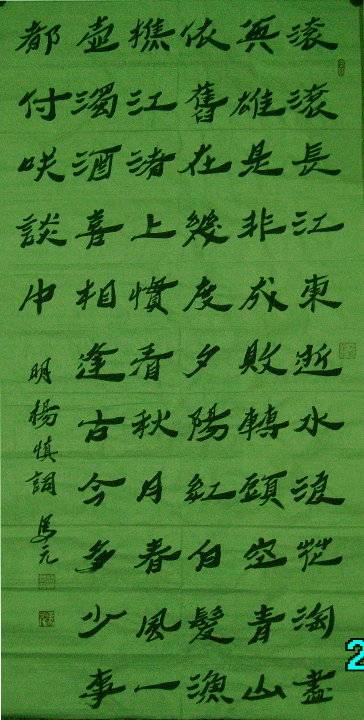 滚滚長江東逝水浪花淘盡
英雄是非成敗轉頭空青山
依舊在幾度夕陽紅白髮漁
樵江渚上慣看秋月春風一
壺濁酒喜相逢古今多少事
都付咲談中
明楊慎詞 馬元
2